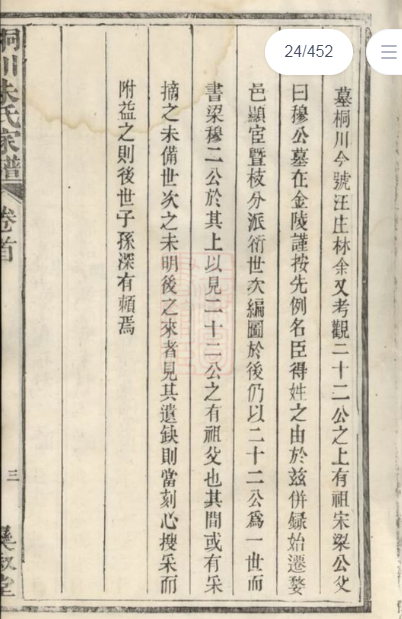 24/452
墓桐川今號汪庄林余又考觀二十二公之上有祖宋梁公父
曰穆公墓在金陵謹按先例名臣得姓之由於茲併錄始遷婺
邑顯宦暨枝分派衍世次編圖於後仍以二十二公為一世而
書梁穆二公於其上以見二十二公之有祖父也其間或有采
摘之未備世次之未明後之來者見其遺缺則當刻心搜采而
附益之則後世子孫深有賴焉
桐川朱氏家譜
卷首
三
敘堂